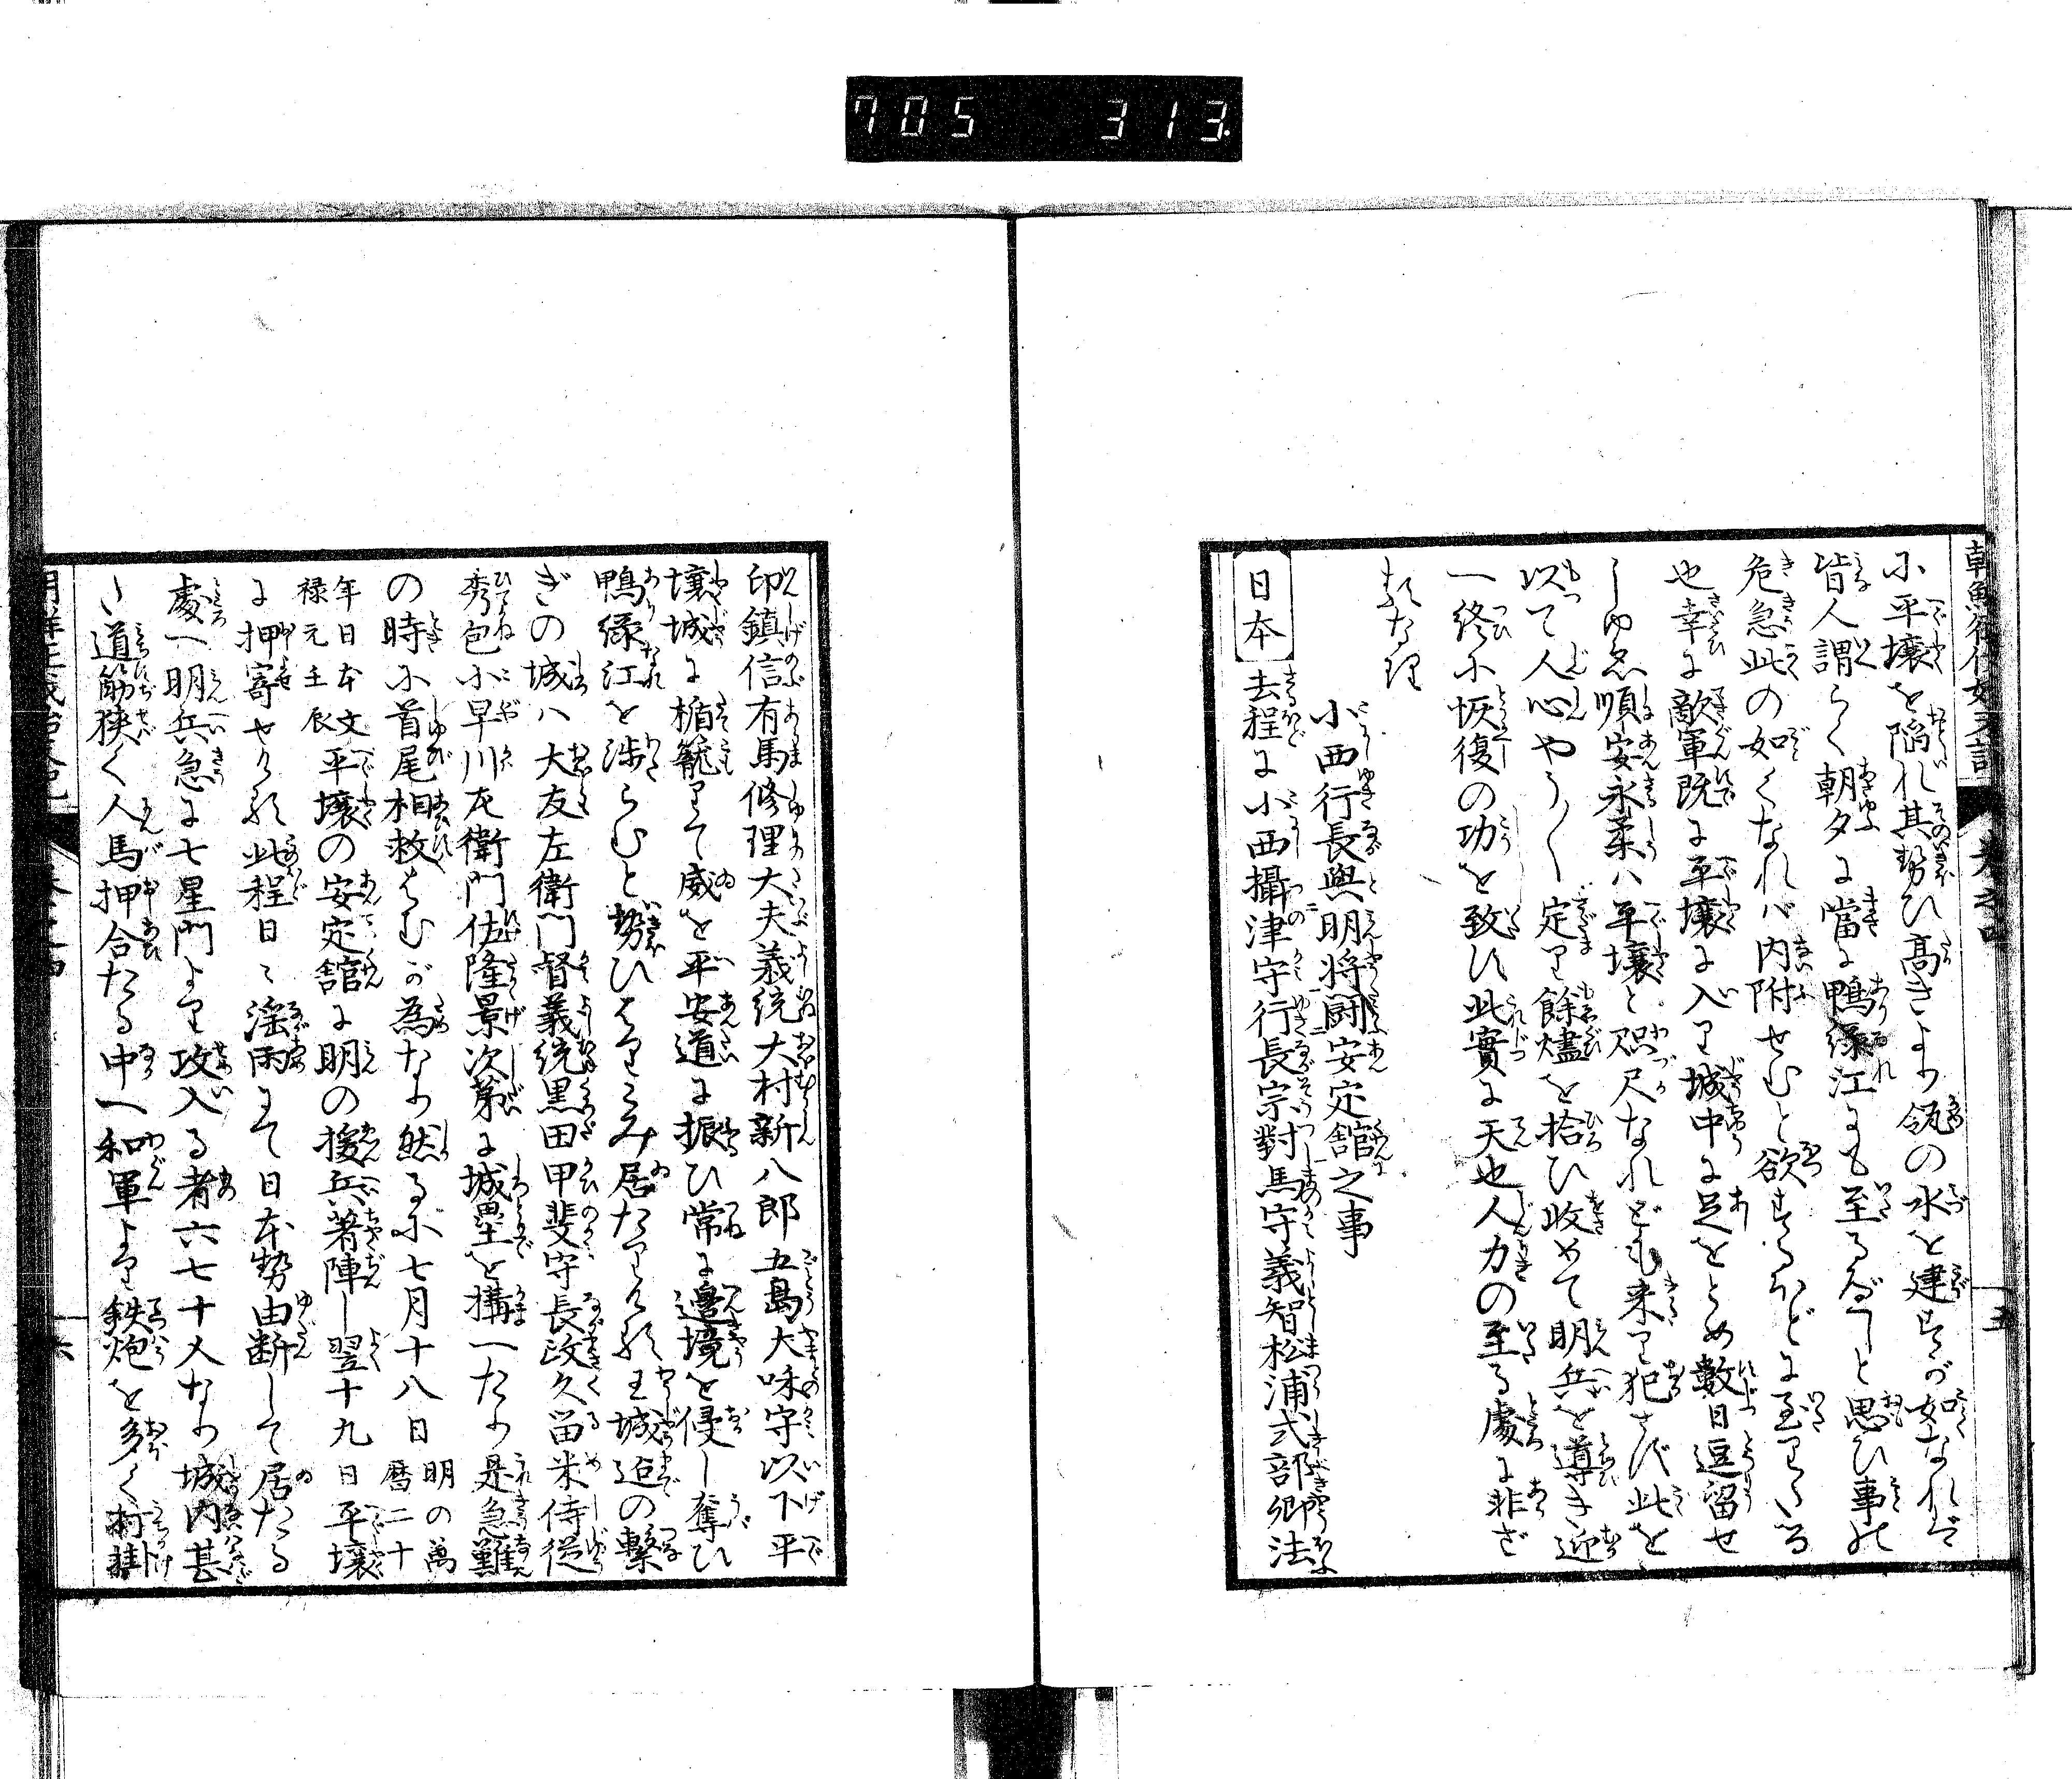 705 313
小平壌を陥れ其勢ひ高きより瓴の水を建するが如なれば
皆人謂らく朝夕に當に鴨緑江にも至るべしと思ひ事の
危急此の如くなれバ内附せむと欲するほどに至りゝる
也幸に敵軍既に平壌に入り城中に足をとめ數日逗留せ
しゆゑ順安永柔ハ平壌と咫尺なれども来り犯さず此を
以て人心やう〳〵定り餘燼を拾ひ收めて明兵を導き迎
へ終小恢復の功を致す此實に天也人力の至る處に非ざ
るな理
小西行長與明將鬪安定舘之事
日本 去程に小西攝津守行長宗對馬守義智松浦式部卿法
印鎮信有馬修理大夫義統大村新八郎五島大和守以下平
壌城に楯籠りて威を平安道に振ひ常に邊境を侵し奪ひ
鴨緑江を渉らむと勢ひはりこみ居たりける王城迄の繋
ぎの城ハ大友左衛門督義統黒田甲斐守長政久留米侍従
秀包小早川左衛門佐隆景次第に城壘を構へたり是急難
の時小首尾相救はむが為なり然る小七月十八日 明の萬暦二十
年日本文禄元壬辰 平壌の安定舘に明の援兵著陣し翌十九日平壌
に押寄せける此程日々淫雨にて日本勢由断して居たる
處へ明兵急に七星門より攻入る者六七十人なり城内甚
い道筋狭く人馬押合たる中へ和軍より鉄炮を多く打掛